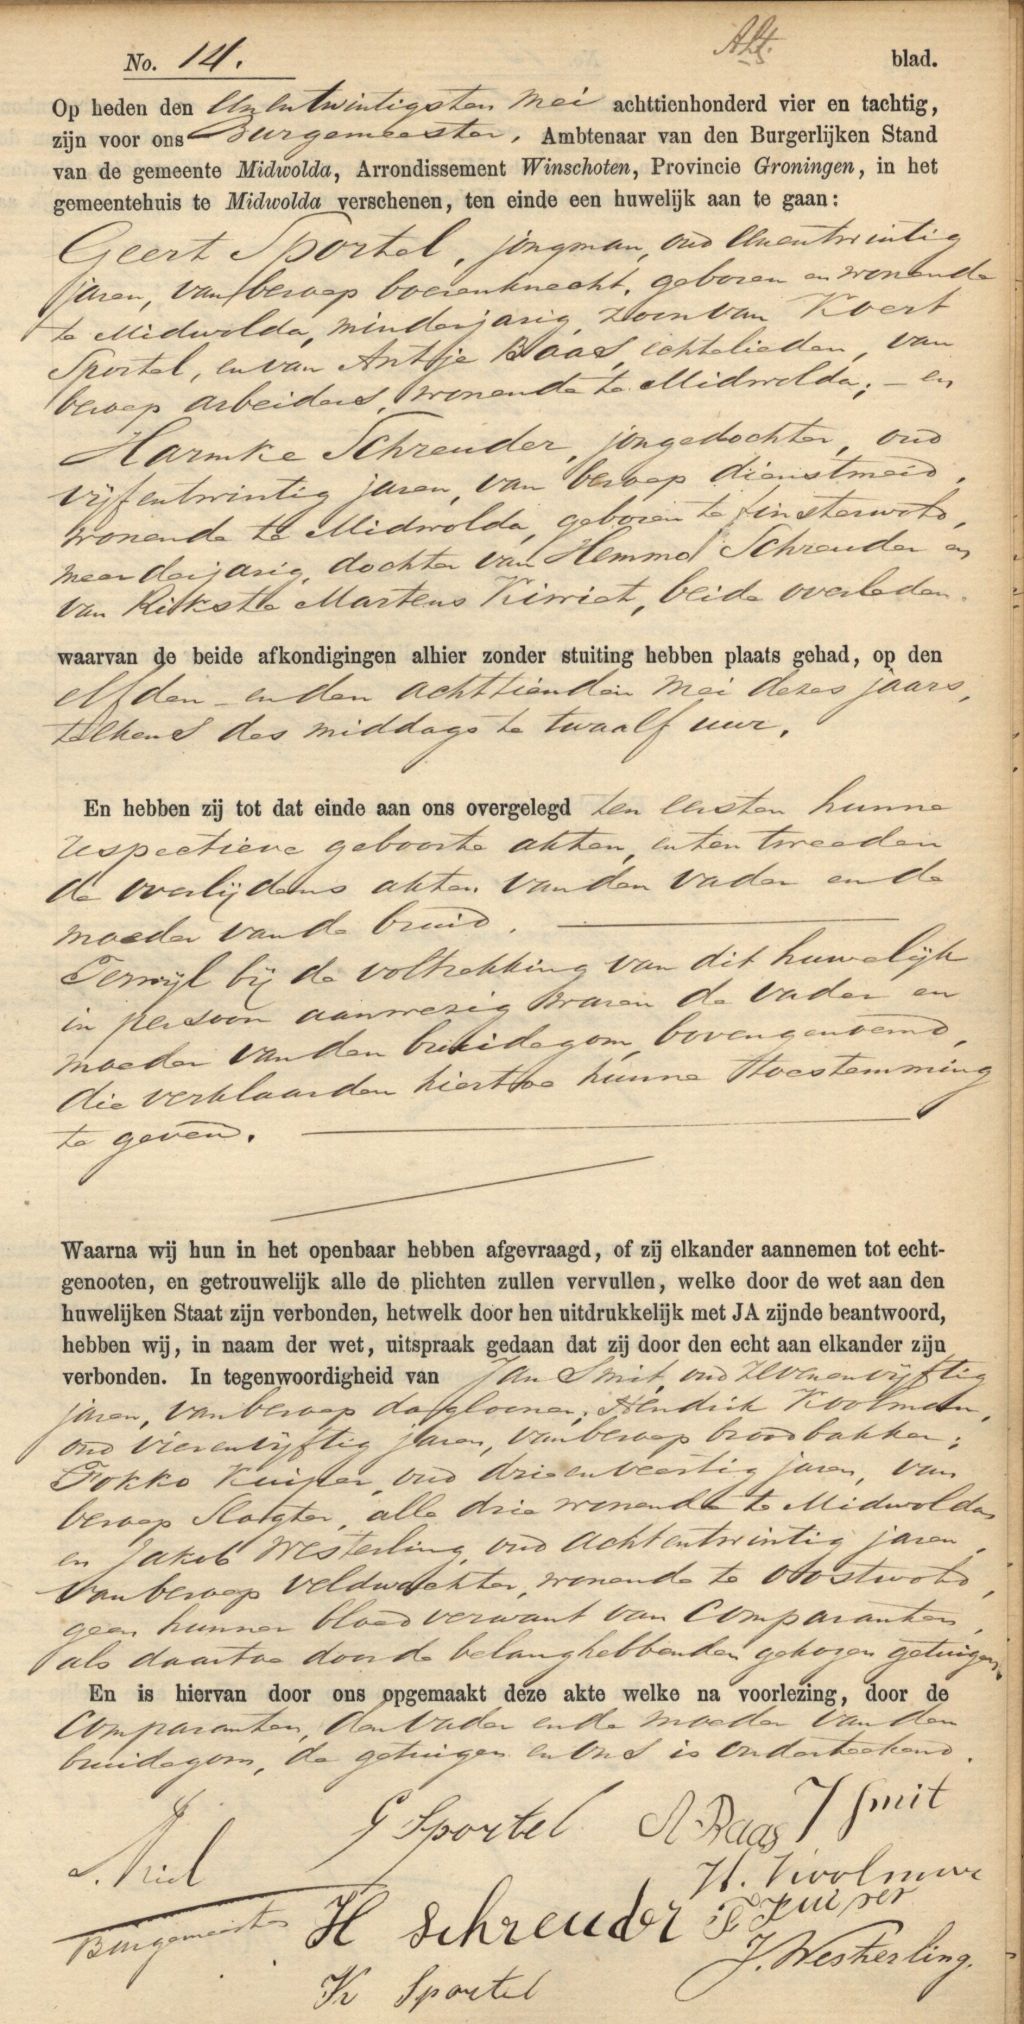 No. 14. blad.
Op heden den eenentwintigsten Mei achttienhonderd vier en tachtig,
zijn voor ons Burgemeester, Ambtenaar van den Burgerlijken Stand
van de gemeente Midwolda, Arrondissement Winschoten, Provincie Groningen, in het
gemeentehuis te Midwolda verschenen, ten einde een huwelijk aan te gaan:
Geert Sportel, jongman, oud eenentwintig
jaren, van beroep boerenknecht, geboren en wonende
te Midwolda, minderjarig, zoon van Koert
Sportel, en van Antje Raas, echtelieden, van
beroep arbeiders, wonende te Midwolda; – en
Harmke Schreuder, jongedochter, oud
vijfentwintig jaren, van beroep dienstmeid,
wonende te Midwolda, geboren te Finsterwold,
meerderjarig, dochter van Hemmo Schreuder en
van Martens, beide overleden.
waarvan de beide afkondigingen alhier zonder stuiting hebben plaats gehad, op den
elfden en den achttienden Mei dezes jaars,
telkens des middags te twaalf uur.
En hebben zij tot dat einde aan ons overgelegd ten eersten hunne
respectieve geboorte akten, en ten tweeden
de overlijdens akten van den vader en de
moeder van de bruid.
Terwijl bij de voltrekking van dit huwelijk
in persoon aanwezig waren de vader en
moeder van den bruidegom, bovengenoemd,
die verklaarden hiertoe hunne toestemming
te geven.
Waarna wij hun in het openbaar hebben afgevraagd, of zij elkander aannemen tot echt-
genooten, en getrouwelijk alle de plichten zullen vervullen, welke door de wet aan den
huwelijken Staat zijn verbonden, hetwelk door hen uitdrukkelijk met JA zijnde beantwoord,
hebben wij, in naam der wet, uitspraak gedaan dat zij door den echt aan elkander zijn
verbonden. In tegenwoordigheid van Jan Smit, oud zevenenvijftig
jaren, van beroep dagloener; Hendrik Koolman,
oud vierenvijftig jaren, van beroep broodbakker;
Fokko Kuiper, oud drieenveertig jaren, van
beroep Slagter, alle drie wonende te Midwolda
en Jakob Westerling, oud achtentwintig jaren,
van beroep veldwachter, wonende te Oostwold,
geen hunner bloedverwant van Comparanten,
als daartoe door de belanghebbenden gekozen getuigen.
En is hiervan door ons opgemaakt deze akte welke na voorlezing, door de
Comparanten, den vader en de moeder van den
bruidegom, de getuigen en ons is onderteekend.
G Sportel A Raas J Smit
H. Koolman
Burgemeester H Schreuder F Kuiper
J. Westerling.
K Sportel